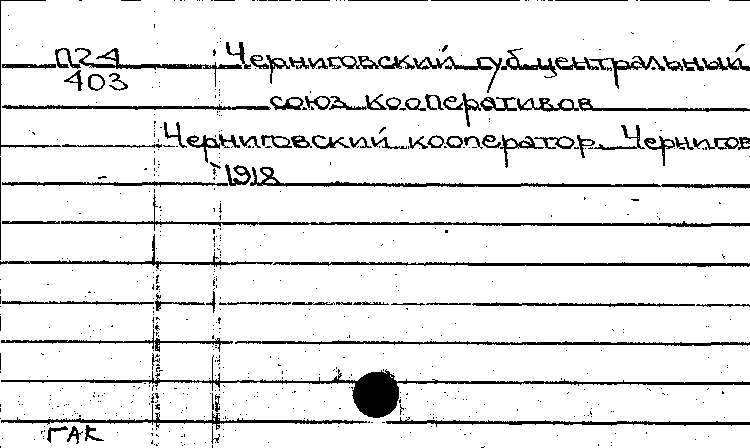 П24 Черниговский губ. центральный
403
союз кооперативов
Черниговский кооператор. Чернигов
1918
ГАК